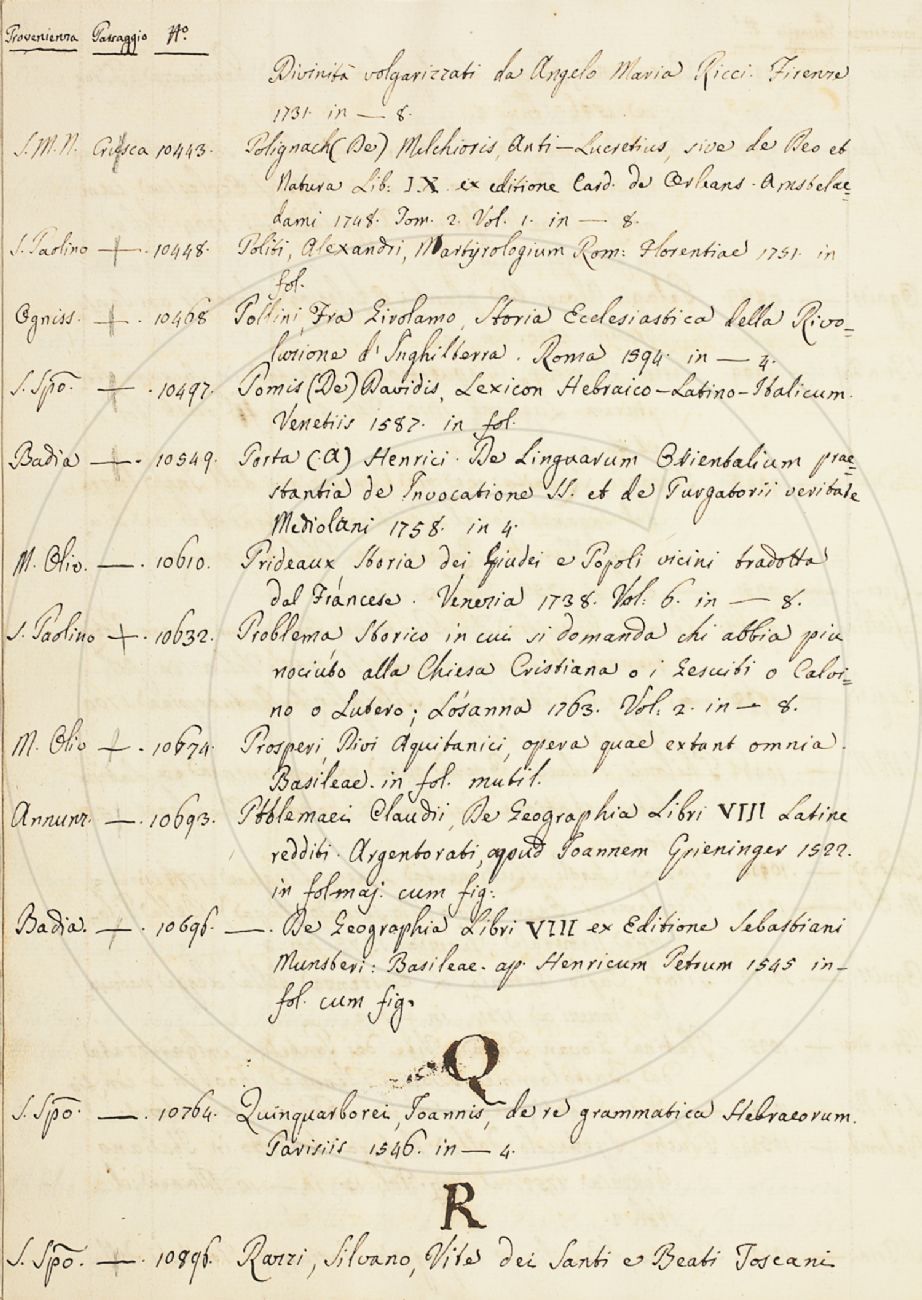 Provenienza Passaggio N.o
Divinità volgarizzati da Angelo Maria Ricci. Firenze
1731. in — 8.
S.M.N. Crusca 10443. Polignach (De) Melchioris, Anti-Lucretius, sive de Deo et
Natura Lib: IX. ex editione Card. de Orleans. Amstelae=
dami 1748. Tom. 2. Vol. 1. in — 8.
S. Paolino —. 10448. Politi, Alexandri, Martyrologium Rom: Florentiae 1751. in
fol.
Ogniss. —. 10468 Pollini, Fra Girolamo, Storia Ecclesiastica della Rivo=
luzione d'Inghilterra. Roma 1594. in — 4.
S. Spo. —. 10497. Pomis (De) Davidis, Lexicon Hebraico-Latino-Italicum.
Venetiis 1587. in fol.
Badia —. 10549. Porta (:A) Henrici. De Linguarum Orientalium prae=
stantia de Invocatione SS. et de Purgatorii veritate
Mediolani 1758. in 4.
M. Oliv. —. 10610. Prideaux Storia dei Giudei e Popoli vicini tradotta
dal Francese. Venezia 1738. Vol: 6. in — 8.
S. Paolino —. 10632. Problema Storico in cui si domanda chi abbia piu
nociuto alla Chiesa Cristiana o i Gesuiti o Calvi=
no o Lutero; Losanna 1763. Vol: 2. in — 8.
M. Oliv —. 10674. Prosperi, Divi Aquitanici, opera quae extant omnia.
Basileae. in fol. mutil.
Annunz. —. 10693. Ptolemaei Claudii, De Geographia Libri VIII Latine
redditi. Argentorati, apud Joannem Grieninger 1522.
in fol. maj. cum fig:
Badia. —. 10696. —. De Geographia Libri VIII ex Editione Sebastiani
Munsteri: Basileae. ap. Henricum Petrum 1545 in-
fol. cum fig.
Q
S. Spo. —. 10764. Quinquarborei, Joannis, de re grammatica Hebraeorum.
Parisiis 1546. in — 4.
R
S. Spo. —. 10896. Razzi, Silvano, Vite dei Santi e Beati Toscani